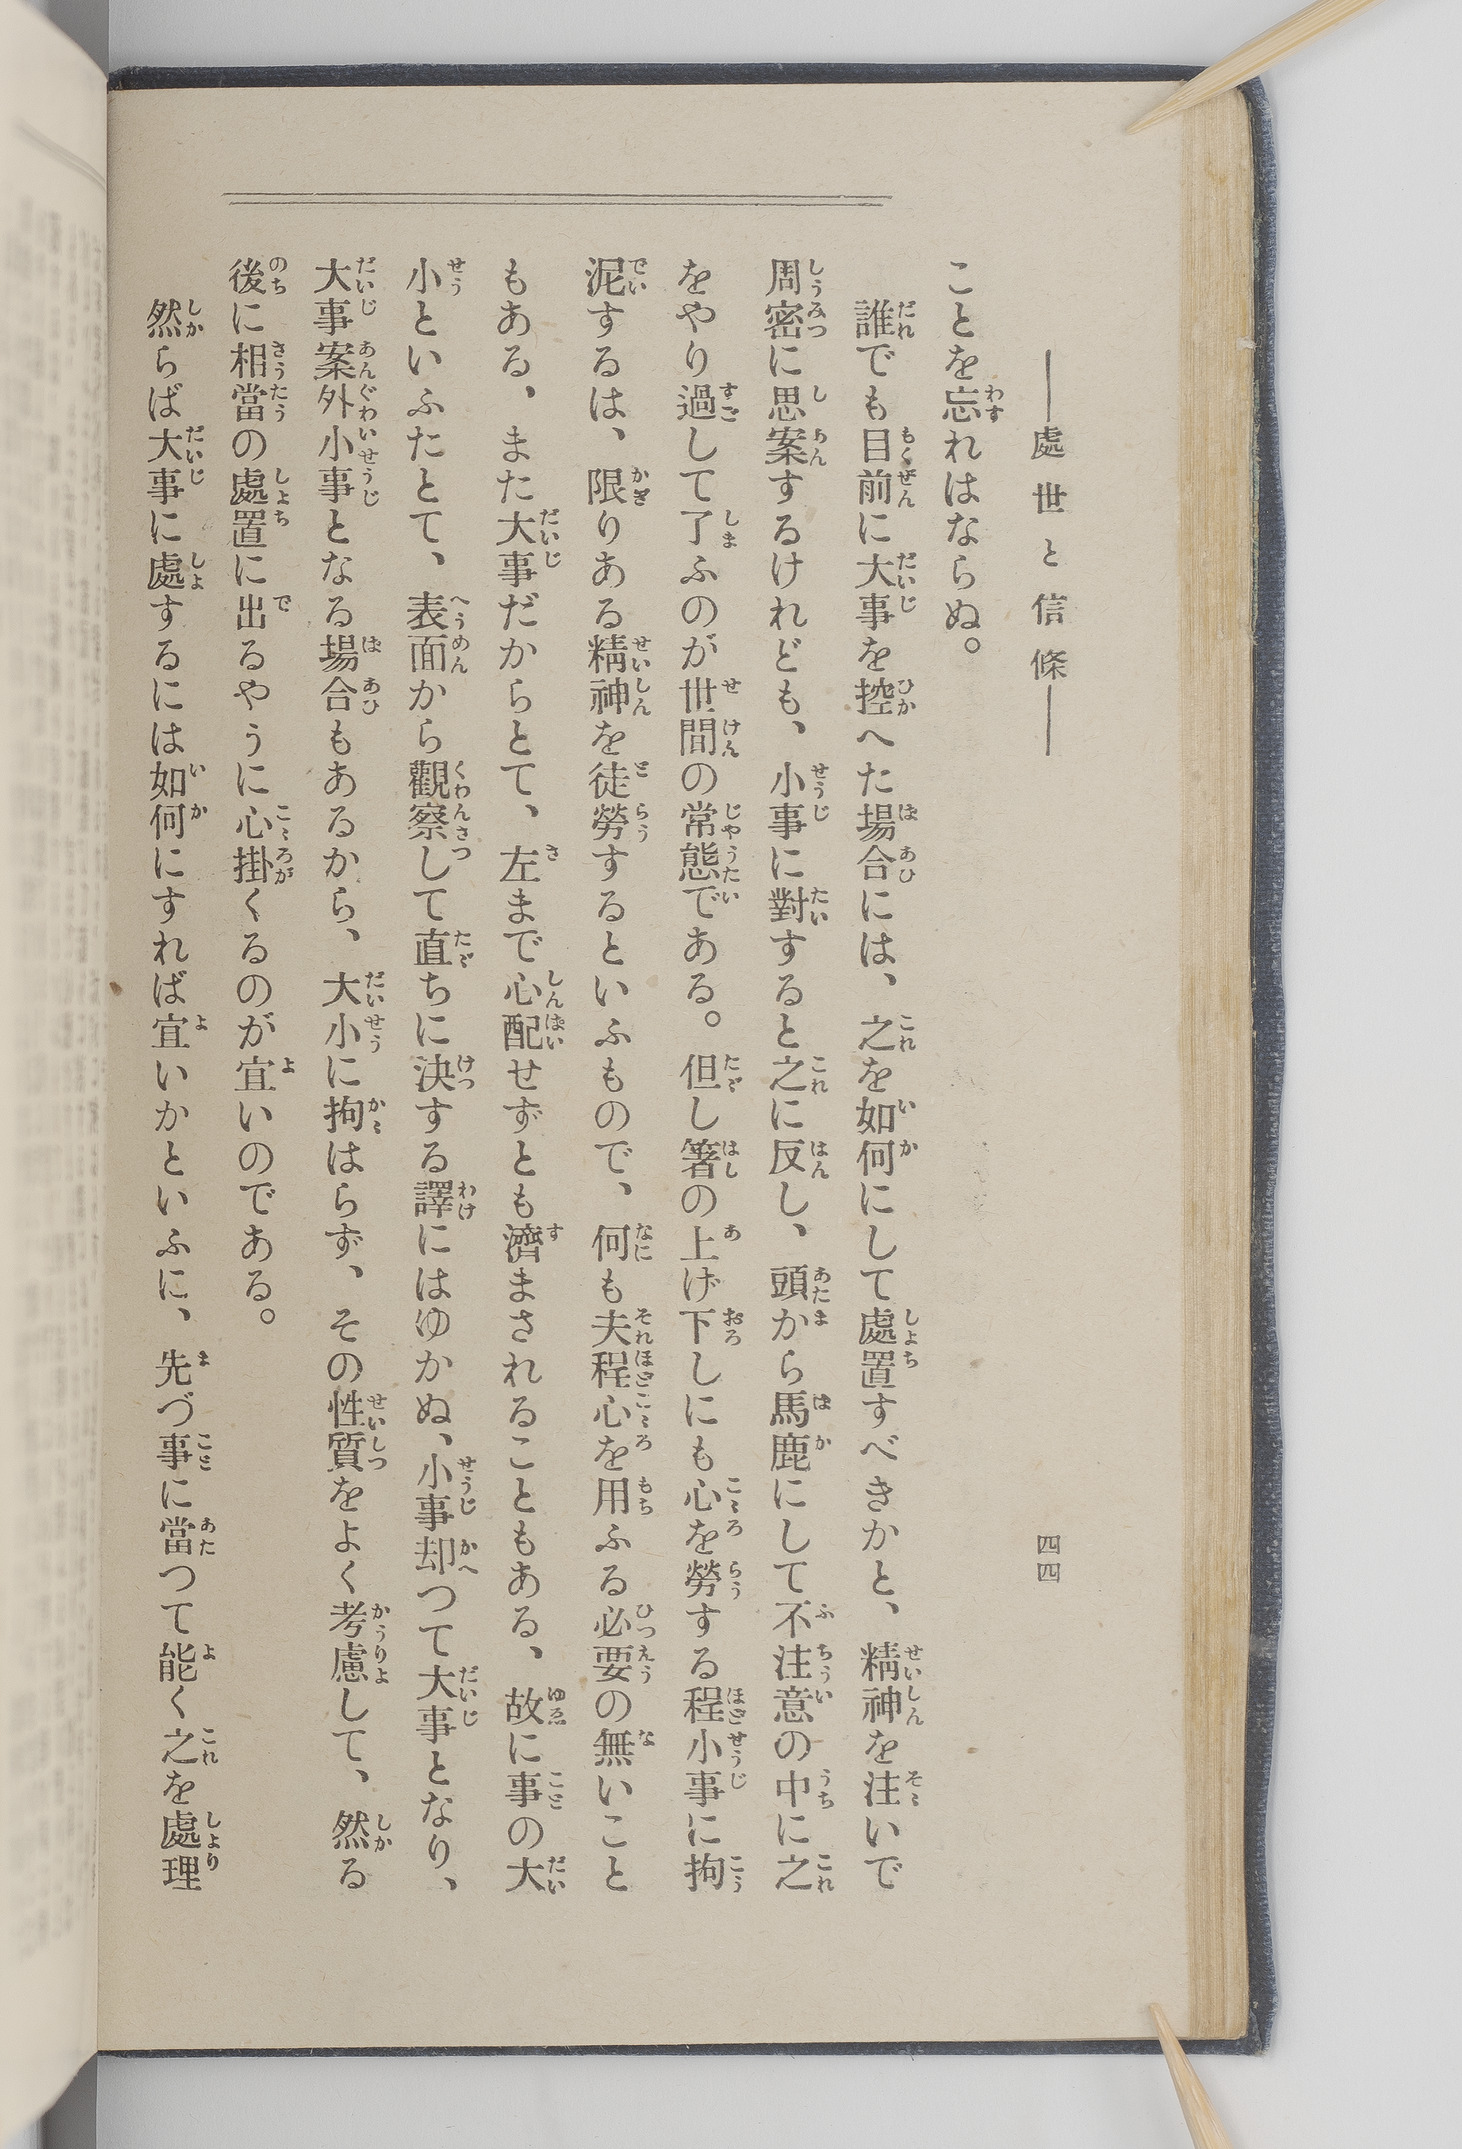 ―處世と信條―
四四
ことを忘れはならぬ。
誰でも目前に大事を控へた場合には、之を如何にして處置すべきかと、精神を注いで
周密に思案するけれども、小事に對すると之に反し、頭から馬鹿にして不注意の中に之
をやり過して了ふのが世間の常態である。但し箸の上げ下しにも心を勞する程小事に拘
泥するは、限りある精神を徒勞するといふもので、何も夫程心を用ふる必要の無いこと
もある、また大事だからとて、左まで心配せずとも濟まされることもある、故に事の大
小といふたとて、表面から觀察して直ちに決する譯にはゆかぬ、小事却つて大事となり、
大事案外小事となる場合もあるから、大小に拘はらず、その性質をよく考慮して、然る
後に相當の處置に出るやうに心掛くるのが宜いのである。
然らば大事に處するには如何にすれば宜いかといふに、先づ事に當つて能く之を處理